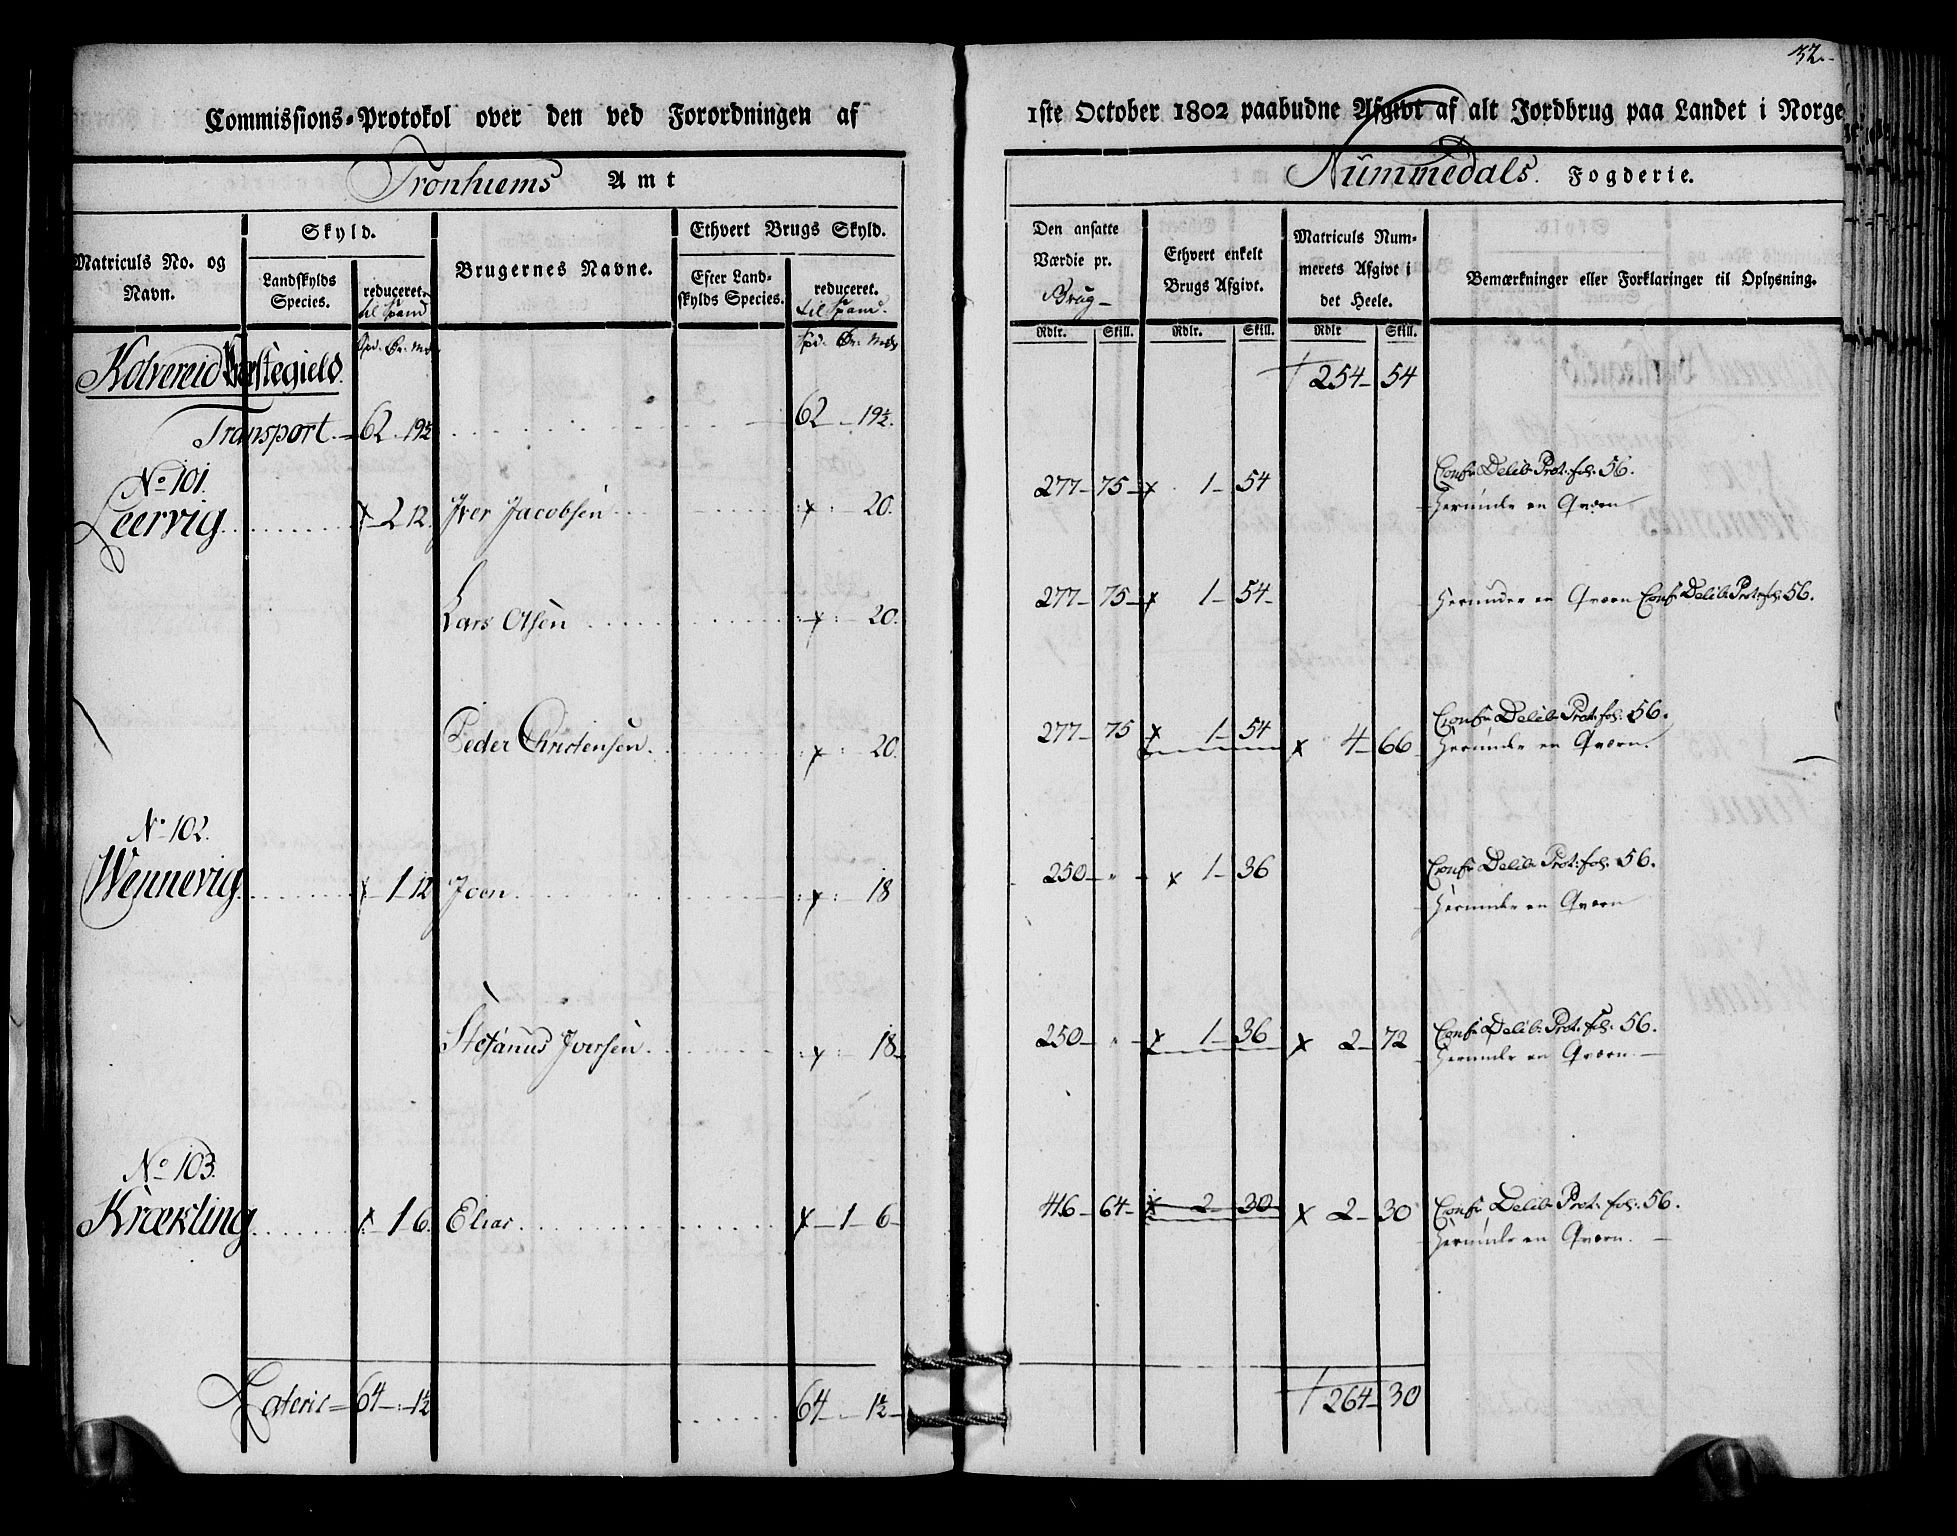 32.
Commissions-Protokol over den ved Forordningen af 1ste October 1802 paabudne Afgivt af alt Jordbrug paa Landet i Norge
Tronhiems Amt
Nummedals Fogderie.
Matriculs No. og Navn.
Skyld.
Landskylds Species.
reduceret til Spand
Brugernes Navne.
Ethvert Brugs Skyld.
Efter Landskylds Species.
reduceret til Spand.
Den ansatte Værdie pr. Brug
Ethvert enkelt Brugs Afgivt.
Matriculs Nummerets Afgivt i det Heele.
Bemærkninger eller Forklaringer til Oplysning.
Spd. Ør. Mkl. Spd. Ør. Mkl. Rdlr. Skill. Rdlr. Skill. Rdlr Skill.
Kolvereid Præstegield. 254 54
Transport 62 19½ 62 19½
No 101. Conf: Delib: Prot: fol: 56.
Leervig 2 12. Iver Jacobsen 20. 277 75 1 54 Herunder en Qværn
Lars Olsen 20. 277 75 1 54 Herunder en Qværn Conf: Delib: Prot: fol: 56.
Conf: Delib: Prot: fol: 56.
Peder Christensen 20. 277 75 1 54 4 66 Herunder en Qværn.
No 102. Conf: Delib: Prot: fol: 56.
Wennevig 1 12 Joen 18 250 " 1 36 Herunder en Qværn
Conf: Delib: Prot: fol: 56.
Stefanus Iversen 18 250 " 1 36 2 72 Herunder en Qværn
No 103. Conf: Delib: Prot: fol: 56.
Krækling 1 6. Elias 1 6 416 64 2 30 2 30 Herunder en Qværn.
Lateris 64 1½ 64 1½ 264 30